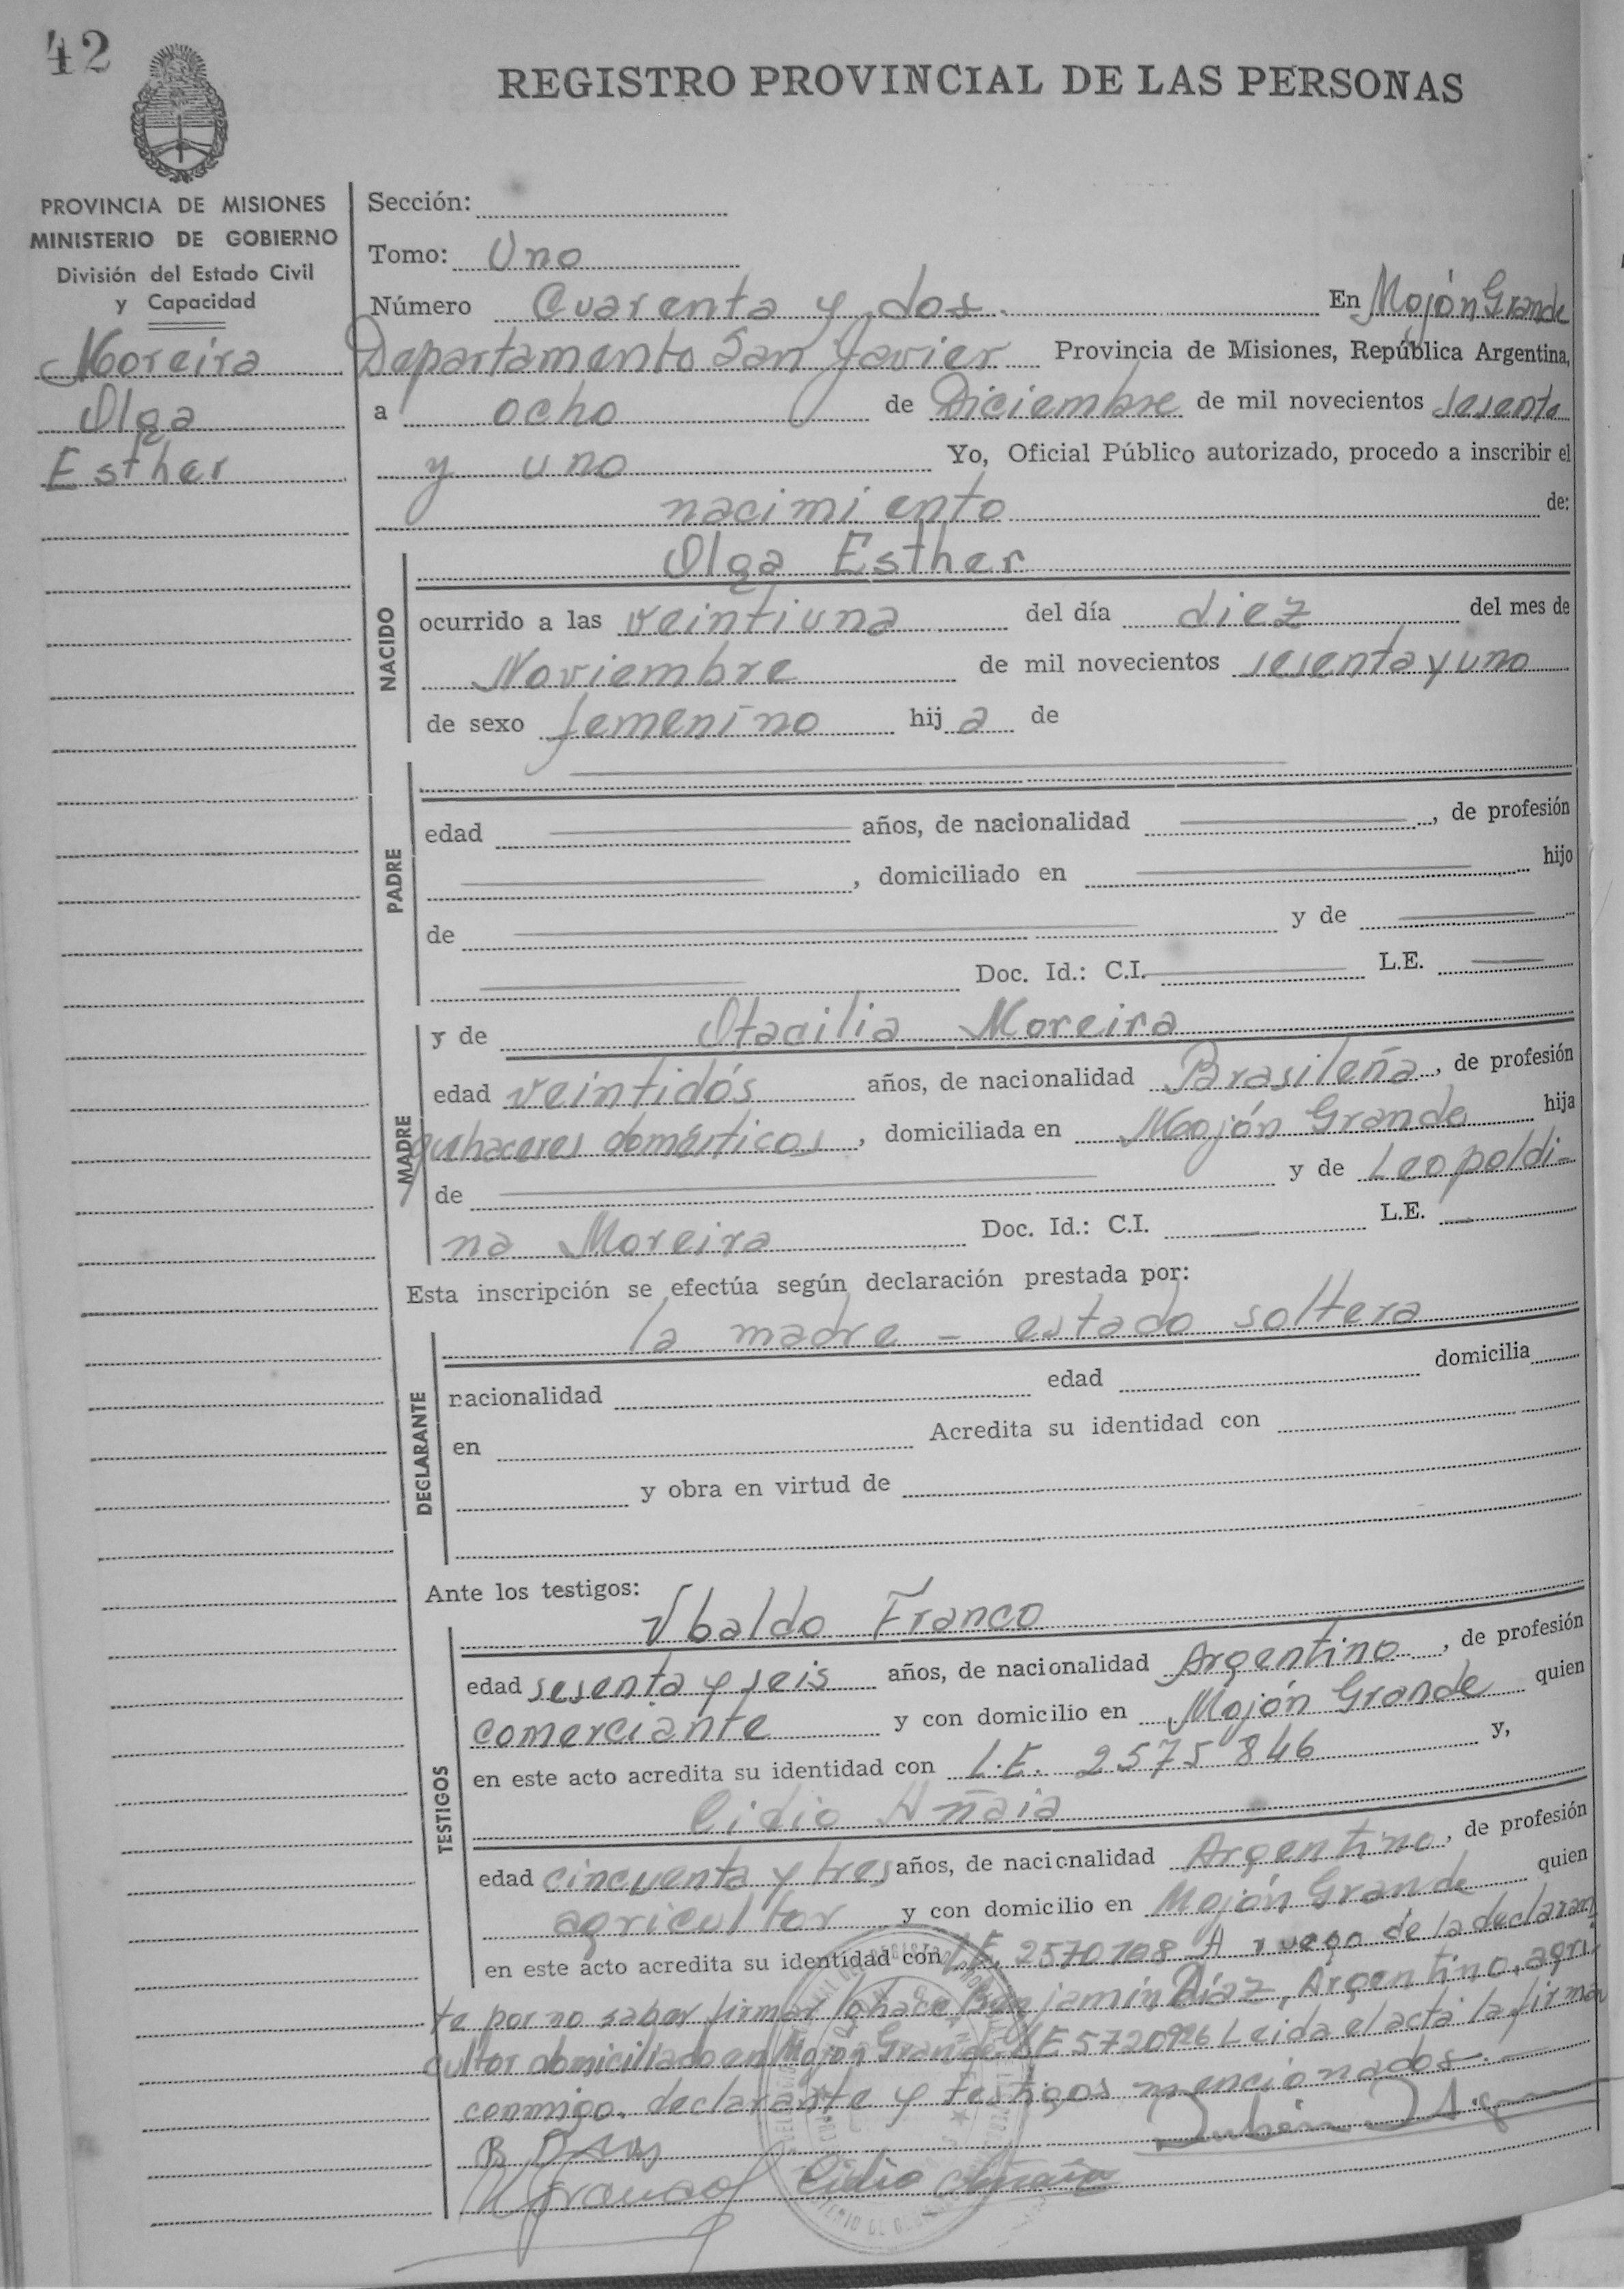 42
REGISTRO PROVINCIAL DE LAS PERSONAS
PROVINCIA DE MISIONES
MINISTERIO DE GOBIERNO
División del Estado Civil
y Capacidad
Moreira
Olga
Esther
Sección:
Tomo: Uno
Número Cuarenta y dos. En Mojón Grande
Departamento San Javier Provincia de Misiones, República Argentina,
a ocho de Diciembre de mil novecientos sesenta
y uno Yo, Oficial Público autorizado, procedo a inscribir el
nacimiento de:
NACIDO
Olga Esther
ocurrido a las veintiuna del día diez del mes de
Noviembre de mil novecientos sesenta y uno
de sexo femenino hija de
PADRE
edad años, de nacionalidad , de profesión
, domiciliado en hijo
de y de
Doc. Id.: C.I. L.E.
MADRE
y de Otacilia Moreira
edad veintidós años, de nacionalidad Brasileña, de profesión
quehaceres domésticos, domiciliada en Mojón Grande hija
de y de Leopoldi-
na Moreira Doc. Id.: C.I. L.E.
Esta inscripción se efectúa según declaración prestada por:
DECLARANTE
la madre - estado soltera
nacionalidad edad domicilia
en Acredita su identidad con
y obra en virtud de
Ante los testigos:
TESTIGOS
Ubaldo Franco
edad sesenta y seis años, de nacionalidad Argentino, de profesión
comerciante y con domicilio en Mojón Grande quien
en este acto acredita su identidad con L.E. 2575846 y,
Cidio Añaia
edad cincuenta y tres años, de nacionalidad Argentino, de profesión
agricultor y con domicilio en Mojón Grande quien
en este acto acredita su identidad con L.E. 2570108 A ruego de la declaran
te por no saber firmar lo hace Benjamín Díaz, Argentino, agri
cultor domiciliado en Mojón Grande LE 5720926 Leida el acta la firman
conmigo, declarante y testigos mencionados.-
B Diaz
UFranco Cidio Anaia